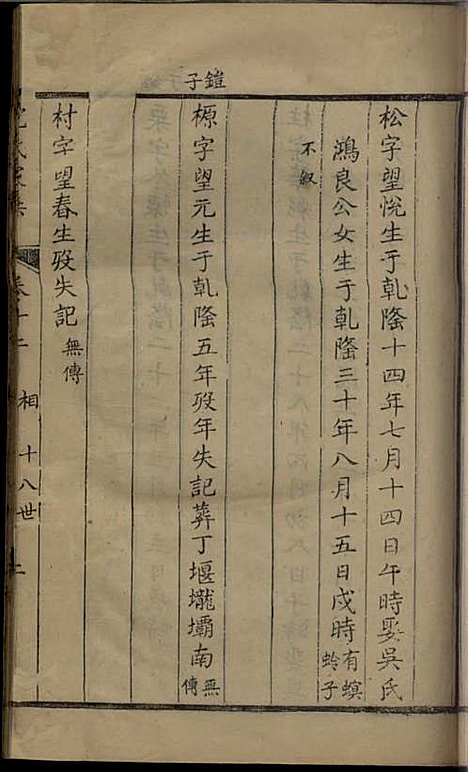 松字望悅生于乾隆十四年七月十四日午時娶吳氏
鴻良公女生于乾隆三十年八月十五日戌時有螟蛉子
不叙
鎧子
榞字望元生于乾隆五年歿年失記葬丁堰壠壩南無傳
村字望春生歿失記無傳
卷十二
相
十八世